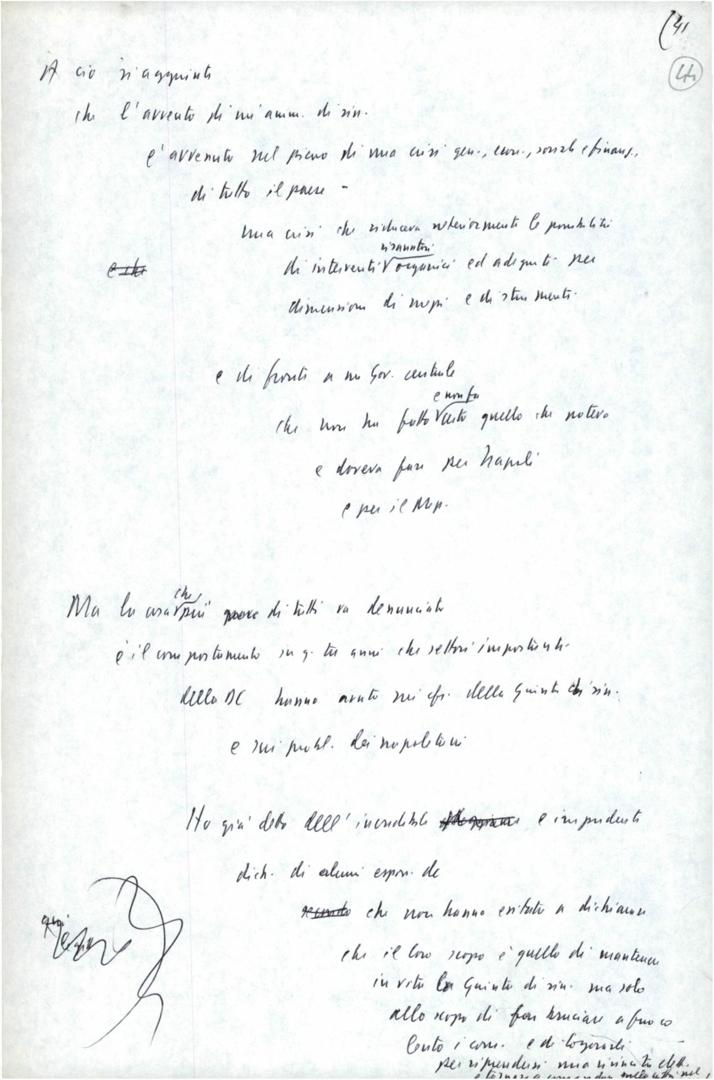 41
4.
A ciò si aggiunti
che l'avvento di un'amm. di sin.
è avvenuto nel pieno di una crisi gen., econ., sociale e finanz.,
di tutto il paese -
una crisi che riduceva ulteriormente le possibilità
risanatori
e che
di interventi organici ed adeguati per
dimensioni di mezzi e di strumenti.
e di fronte a un Gov. centrale
e non fa
che non ha fatto certo quello che poteva
e doveva fare per Napoli
e per il Mzp.
che
Ma la cosa più grave di tutti va denunciata
è il comportamento in q. tre anni che settori importanti
della DC hanno avuto nei cfr. della Giunta di sin.
e sui probl. dei napoletani
Ho già detto dell'incredibile e impudente
dich. di alcuni espon. dc
secondo che non hanno esitato a dichiarare
che il loro scopo è quello di mantenere
in vita la Giunta di sin. ma solo
allo scopo di far bruciare a fuoco
lento i com. e di logorarli
per riprendersi una rivincita